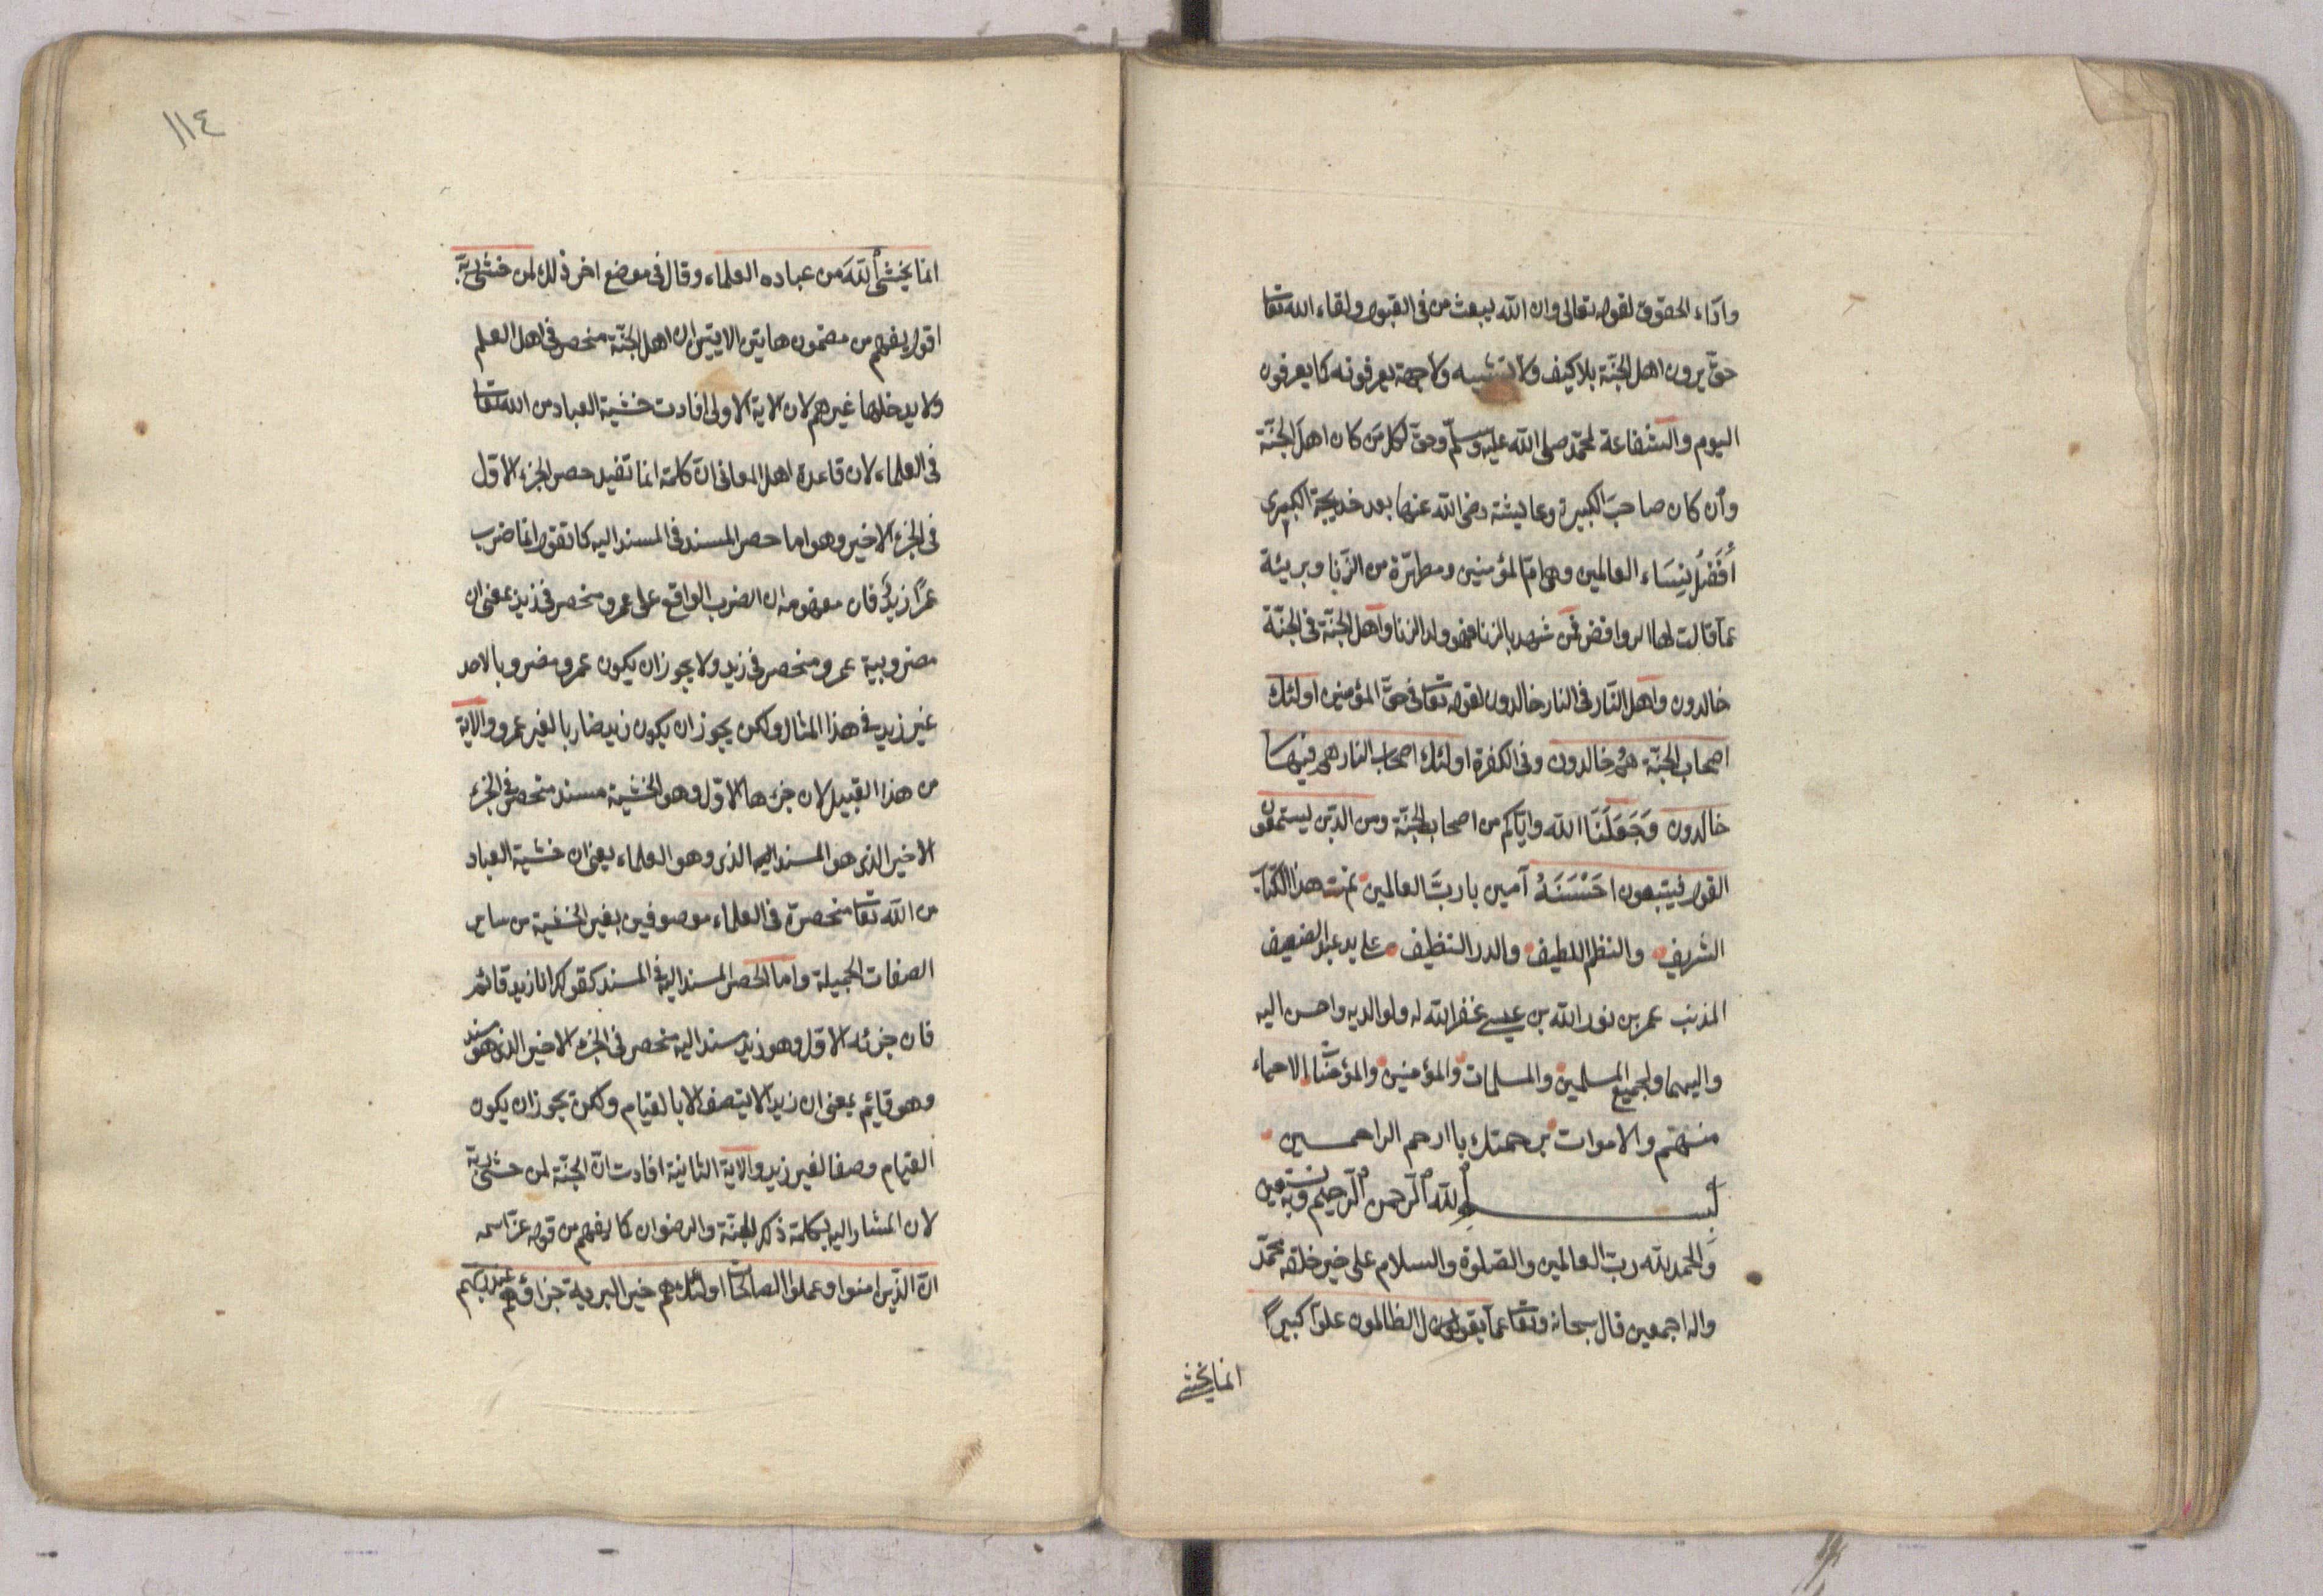 وآداء الحقوق لقوله تعالى وان الله يبعث من فى القبور ولقاء الله تعا
حق يرون اهل الجنّة بلا كيف ولا تشبيه ولا جهة يعرفونه كما يعرفون
اليوم والشفاعة لمحمّد صلى الله عليه وسلّم وحق لكل من كان اهل الجنّة
وان كان صاحب الكبيرة وعايشة رضى الله عنها بعد خديجة الكبرى
أفضل نساء العالمين وهى امّ المؤمنين ومطهّرة من الزنا وبريئة
عمّا قالت لها الروافض فمن شهد بالزنا فهو ولد الزنا واهل الجنّة فى الجنّة
خالدون واهل النّار فى النار خالدون لقوله تعا فى حق المؤمنين اولئك
اصحاب الجنّة هم خالدون وفى الكفرة اولئك اصحاب النار هم فيها
خالدون وَجَعَلَنَا الله وايّاكم من اصحاب الجنّة ومن الذين يستمعون
القول فيتبعون احسنه آمين يا ربّ العالمين تمت هذا الكتاب
الشريف والنظم اللطيف والدر النظيف على يد عبد الضعيف
المذنب عمر بن نور الله بن عيسى غفر الله له ولوالديه واحسن اليه
واليهما ولجميع المسلمين والمسلمات والمؤمنين والمؤمنات الاحياء
منهم والاموات برحمتك يا ارحم الراحمين
بسم الله الرّحمن الرّحيم وبه نستعين
والحمد لله ربّ العالمين والصّلوة والسلام على خير خلقه محمّد
واله اجمعين قال سبحانه وتعا عمّا يقول الظالمون علوّا كبيرًا
انما يخشى
١١٤
انما يخشى اللهَ من عباده العلماء وقال فى موضع اخر ذلك لمن خشى ربّه
اقول يفهم من مضمون هاتين الايتين ان اهل الجنّة منحصر فى اهل العلم
ولا يدخلها غيرهم لان الاية الاولى افادت خشية العباد من الله تعا
فى العلماء لان قاعدة اهل المعانى انّ كلمة انما تفيد حصر الجزء الاول
فى الجزء الاخير وهو اما حصر المسند فى المسند اليه كما تقول انما ضرب
عمرًا زيدٌ فان مفهومه ان الضرب الواقع على عمرو منحصر فى زيد بمعنى ان
مضروبية عمرو منحصر فى زيد ولا يجوز ان يكون عمرو مضروبا لاحد
غير زيد فى هذا المثال ولكن يجوز ان يكون زيد ضاربا لغير عمرو والاية
من هذا القبيل لان جزءها الاوّل وهو الخشية مسند منحصر فى الجزء
الاخير الذى هو المسند اليه الذى وهو العلماء يعنى ان خشية العباد
من الله تعا منحصرة فى العلماء موصوفين بغير الخشية من ساير
الصفات الجميلة واما الحصر المسند اليه فى المسند كقولك انما زيد قائم
فان جزئه الاوّل وهو زيد مسند اليه منحصر فى الجزء الاخير الذى هو مسند
وهو قايم بمعنى ان زيدا لا يتصف الا بالقيام ولكن يجوز ان يكون
القيام وصفا لغير زيد والاية الثانية افادت انّ الجنّة لمن خشى ربّه
لان المشار اليه بكلمة ذلك الجنّة والرضوان كما يفهم من قوله عزّ اسمه
انّ الذين امنوا وعملوا الصالحات اولئك هم خير البرية جزاؤهم عند ربهم